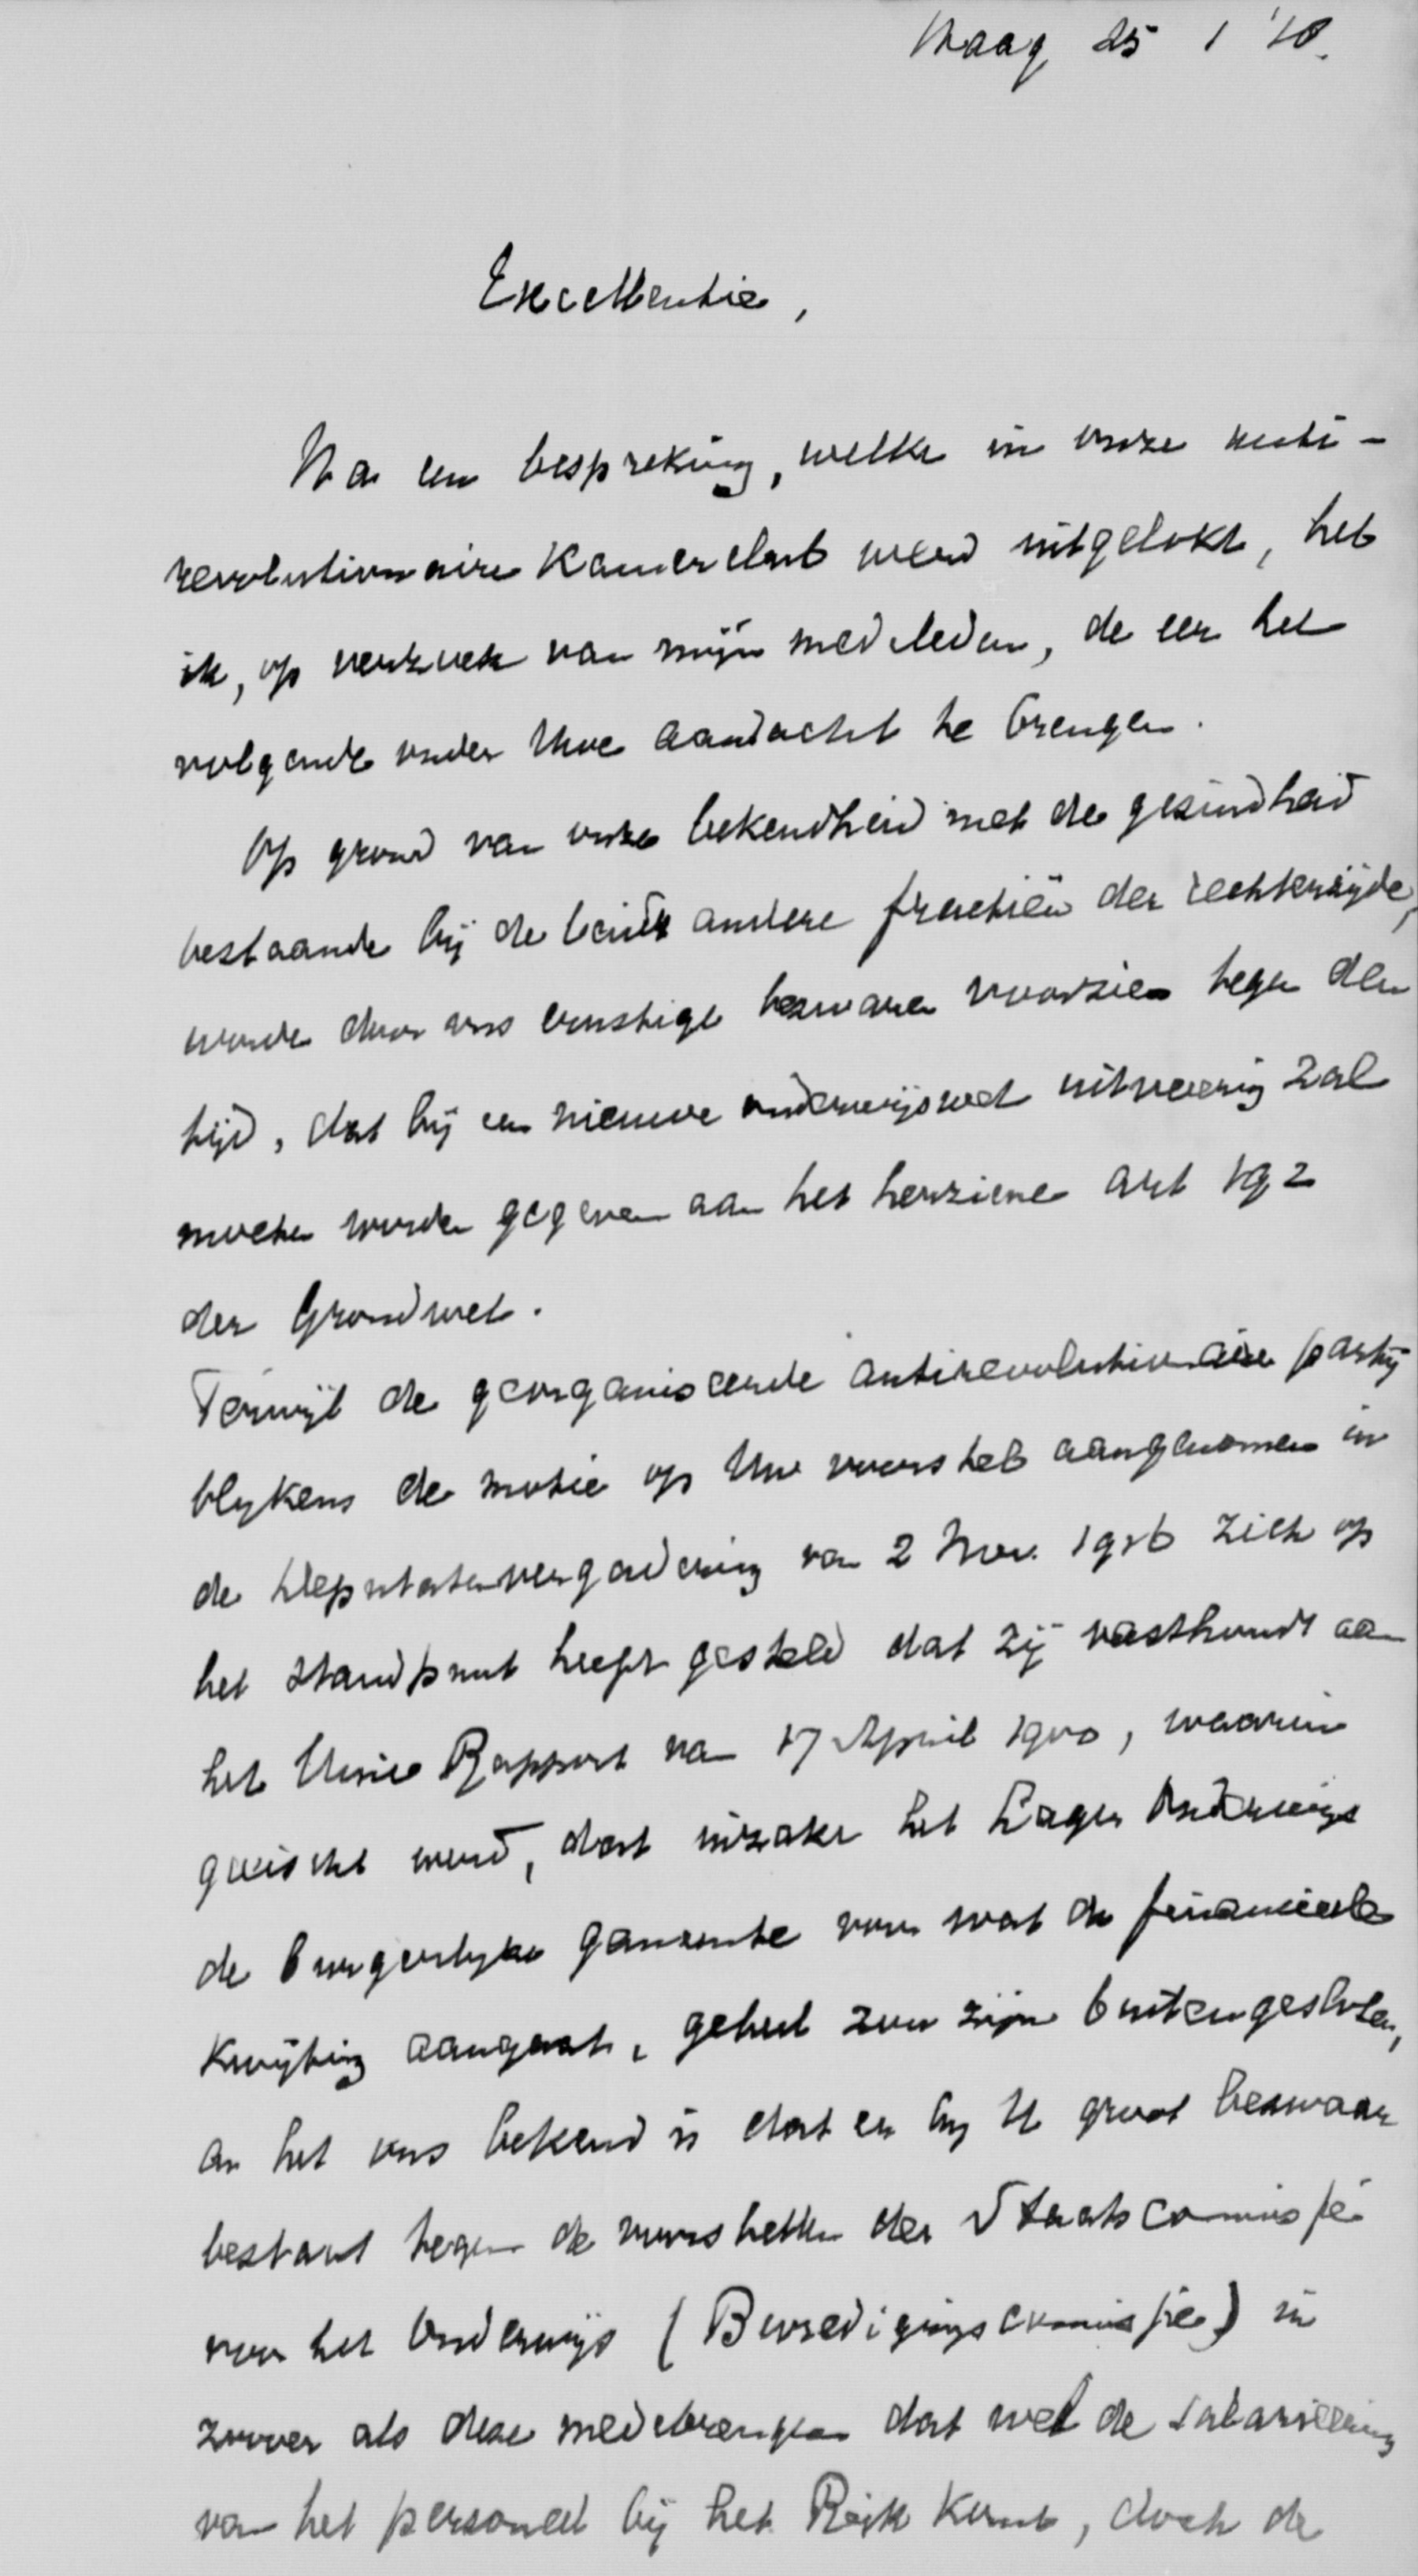 Haag 25 1 '18.
Excellentie,
Na een bespreking, welke in onze anti-
revolutionaire Kamerclub werd uitgelokt, heb
ik, op verzoek van mijn medeleden, de eer het
volgende onder Uwe aandacht te brengen.
Op grond van onze bekendheid met de gezindheid
bestaande bij de beide andere fractiën der rechterzijde,
worden door ons ernstige bezwaren voorzien tegen den
tijd, dat bij een nieuwe onderwijswet uitvoering zal
moeten worden gegeven aan het herziene art 192
der Grondwet.
Terwijl de georganiseerde antirevolutionaire partij
blykens de motie op Uw voorstel aangenomen in
de Deputatenvergadering van 2 Nov. 1916 zich op
het standpunt heeft gesteld dat zij vasthoudt aan
het Unie Rapport van 17 April 1900, waarin
geeischt werd, dat inzake het Lager Onderwijs
de burgerlyke gemeente voor wat de financieele
Kwijting aangaat, geheel zou zijn buitengesloten,
en het ons bekend is dat er by U groot bezwaar
bestaat tegen de voorstellen der Staatscommissie
voor het Onderwijs (Bevredigingscommissie) in
zoover als deze medebrengen dat wel de salarieering
van het personeel bij het Rijk komt, doch de